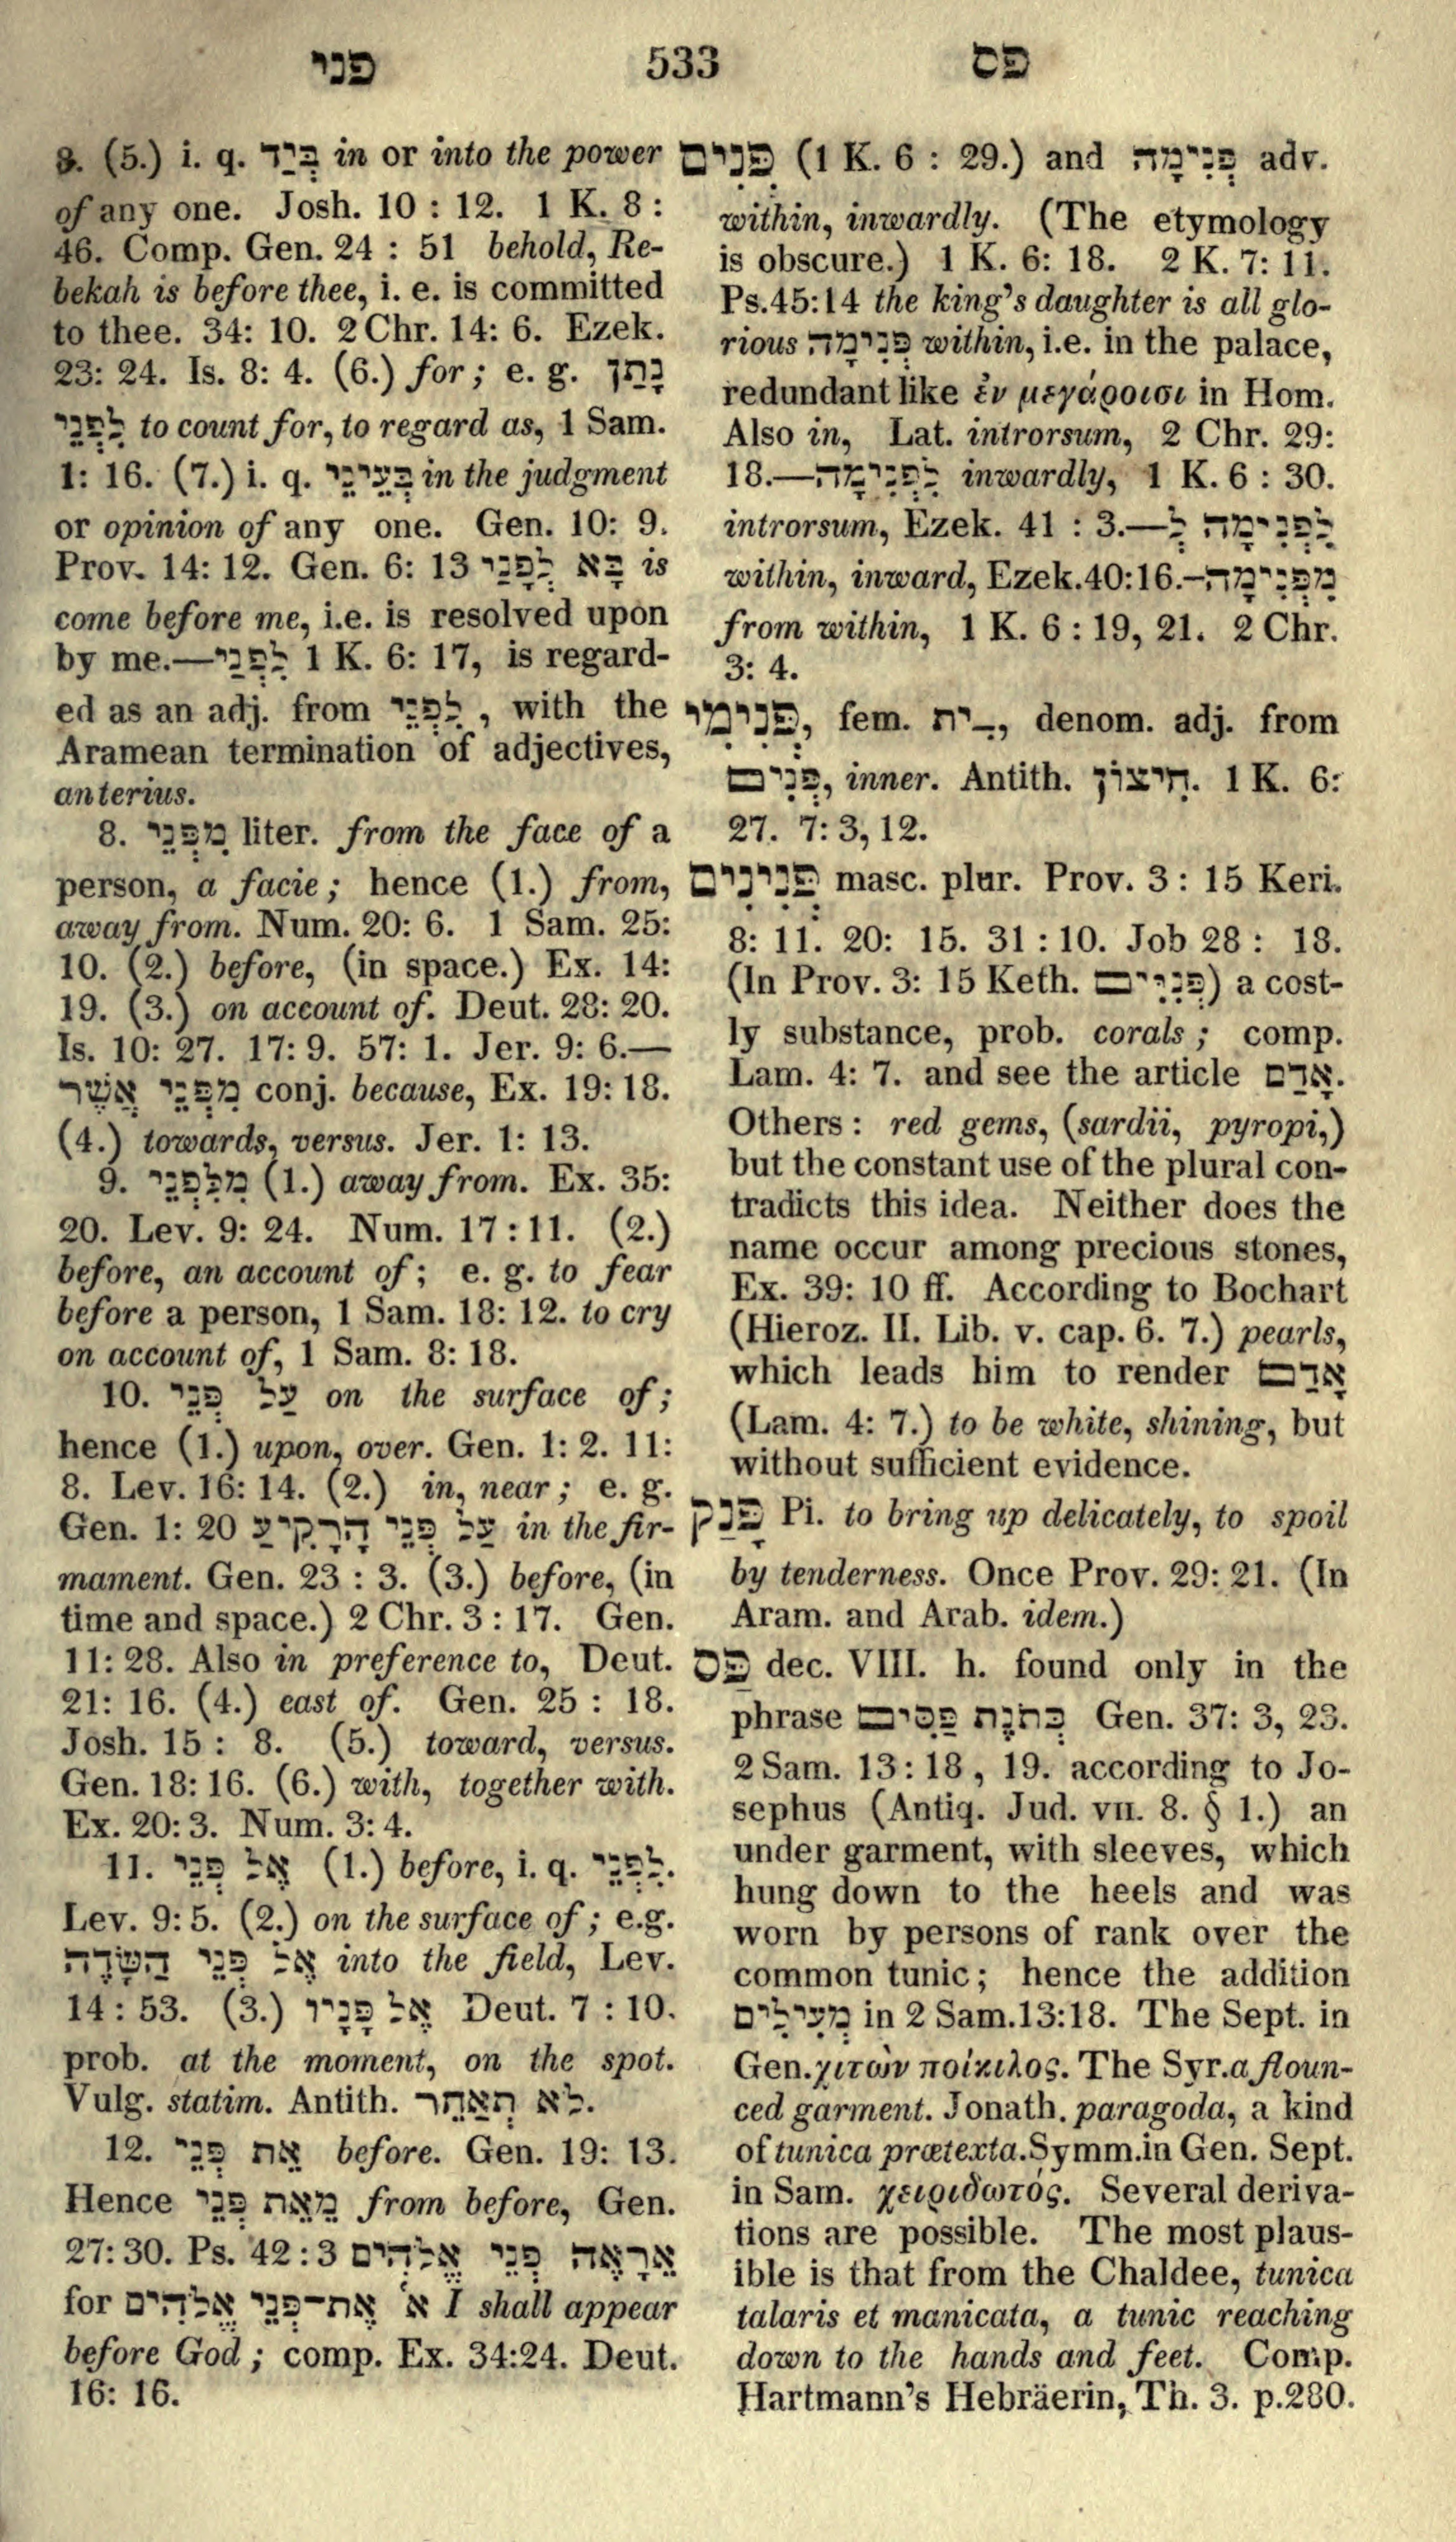 פני 533 פס
8. (5.) i. q. בְּיַד in or into the power
of any one. Josh. 10 : 12. 1 K. 8 :
46. Comp. Gen. 24 : 51 behold, Re-
bekah is before thee, i. e. is committed
to thee. 34: 10. 2 Chr. 14: 6. Ezek.
23: 24. Is. 8: 4. (6.) for; e. g. נָתַן
לִפְנֵי to count for, to regard as, 1 Sam.
1: 16. (7.) i. q. בְּעֵינֵי in the judgment
or opinion of any one. Gen. 10: 9.
Prov. 14: 12. Gen. 6: 13 בָּא לְפָנַי is
come before me, i.e. is resolved upon
by me.—לִפְנַי 1 K. 6: 17, is regard-
ed as an adj. from לִפְנֵי, with the
Aramean termination of adjectives,
anterius.
8. מִפְּנֵי liter. from the face of a
person, a facie; hence (1.) from,
away from. Num. 20: 6. 1 Sam. 25:
10. (2.) before, (in space.) Ex. 14:
19. (3.) on account of. Deut. 28: 20.
Is. 10: 27. 17: 9. 57: 1. Jer. 9: 6.—
מִפְּנֵי אֲשֶׁר conj. because, Ex. 19: 18.
(4.) towards, versus. Jer. 1: 13.
9. מִלִּפְנֵי (1.) away from. Ex. 35:
20. Lev. 9: 24. Num. 17 : 11. (2.)
before, an account of; e. g. to fear
before a person, 1 Sam. 18: 12. to cry
on account of, 1 Sam. 8: 18.
10. עַל פְּנֵי on the surface of;
hence (1.) upon, over. Gen. 1: 2. 11:
8. Lev. 16: 14. (2.) in, near; e. g.
Gen. 1: 20 עַל פְּנֵי הָרָקִיעַ in the fir-
mament. Gen. 23 : 3. (3.) before, (in
time and space.) 2 Chr. 3 : 17. Gen.
11: 28. Also in preference to, Deut.
21: 16. (4.) east of. Gen. 25 : 18.
Josh. 15 : 8. (5.) toward, versus.
Gen. 18: 16. (6.) with, together with.
Ex. 20: 3. Num. 3: 4.
11. אֶל פְּנֵי (1.) before, i. q. לִפְנֵי.
Lev. 9: 5. (2.) on the surface of; e.g.
אֶל פְּנֵי הַשָּׂדֶה into the field, Lev.
14 : 53. (3.) אֶל פָּנָיו Deut. 7 : 10.
prob. at the moment, on the spot.
Vulg. statim. Antith. לֹא תְאַחֵר.
12. אֵת פְּנֵי before. Gen. 19: 13.
Hence מֵאֵת פְּנֵי from before, Gen.
27: 30. Ps. 42 : 3 אֵרָאֶה פְּנֵי אֱלֹהִים
for א׳ אֶת־פְּנֵי אֱלֹהִים I shall appear
before God; comp. Ex. 34:24. Deut.
16: 16.
פְּנִים (1 K. 6 : 29.) and פְּנִימָה adv.
within, inwardly. (The etymology
is obscure.) 1 K. 6: 18. 2 K. 7: 11.
Ps. 45: 14 the king's daughter is all glo-
rious פְּנִימָה within, i.e. in the palace,
redundant like ἐν μεγάροισι in Hom.
Also in, Lat. introrsum, 2 Chr. 29:
18.—לִפְנִימָה inwardly, 1 K. 6 : 30.
introrsum, Ezek. 41 : 3.—לִפְנִימָה לְ
within, inward, Ezek. 40: 16.—מִפְּנִימָה
from within, 1 K. 6 : 19, 21. 2 Chr.
3: 4.
פְּנִימִי, fem. ־ִית, denom. adj. from
פְּנִים, inner. Antith. חִיצוֹן. 1 K. 6:
27. 7: 3, 12.
פְּנִינִים masc. plur. Prov. 3 : 15 Keri.
8: 11. 20: 15. 31 : 10. Job 28 : 18.
(In Prov. 3: 15 Keth. פְּנִיִּים) a cost-
ly substance, prob. corals; comp.
Lam. 4: 7. and see the article אָדַם.
Others : red gems, (sardii, pyropi,)
but the constant use of the plural con-
tradicts this idea. Neither does the
name occur among precious stones,
Ex. 39: 10 ff. According to Bochart
(Hieroz. II. Lib. v. cap. 6. 7.) pearls,
which leads him to render אָדַם
(Lam. 4: 7.) to be white, shining, but
without sufficient evidence.
פָּנַק Pi. to bring up delicately, to spoil
by tenderness. Once Prov. 29: 21. (In
Aram. and Arab. idem.)
פַּס dec. VIII. h. found only in the
phrase כְּתֹנֶת פַּסִּים Gen. 37: 3, 23.
2 Sam. 13: 18, 19. according to Jo-
sephus (Antiq. Jud. VII. 8. § 1.) an
under garment, with sleeves, which
hung down to the heels and was
worn by persons of rank over the
common tunic; hence the addition
מְעִילִים in 2 Sam. 13:18. The Sept. in
Gen. χιτὼν ποίκιλος. The Syr. a floun-
ced garment. Jonath. paragoda, a kind
of tunica prætexta. Symm. in Gen. Sept.
in Sam. χειριδωτός. Several deriva-
tions are possible. The most plaus-
ible is that from the Chaldee, tunica
talaris et manicata, a tunic reaching
down to the hands and feet. Comp.
Hartmann's Hebräerin, Th. 3. p. 280.